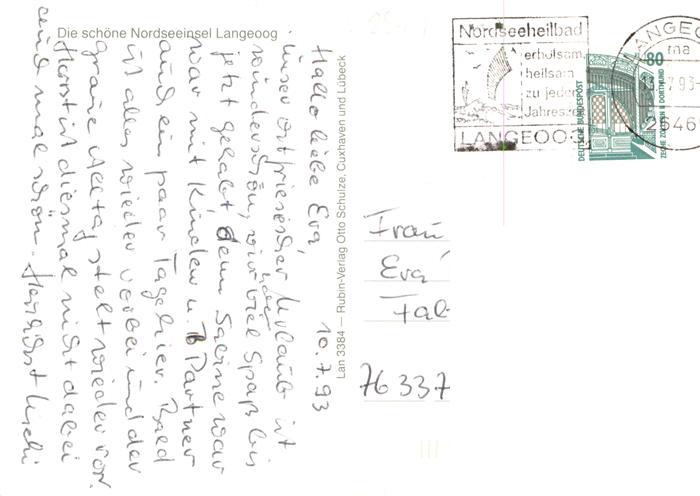 Die schöne Nordseeinsel Langeoog
10.7.93
Hallo liebe Eva,
unser ostfriesischer Urlaub ist
wunderschön, wir haben viel Spaß bis
jetzt gehabt, denn Sabine war
war mit Kindern u. Partner
auch ein paar Tage hier. Bald
ist alles wieder vorbei und der
graue Alltag steht wieder vor.
Horst ist diesmal nicht dabei
auch mal schön. Herzlichst Uschi
Lan 3384 — Rubin-Verlag Otto Schulze, Cuxhaven und Lübeck
Nordseeheilbad
erholsam
heilsam
zu jeder
Jahreszeit
LANGEOOG
LANGEOOG
ma
13. 7.93-
26461
80
DEUTSCHE BUNDESPOST
ZECHE ZOLLERN II DORTMUND
Frau
Eva
Fab
76337